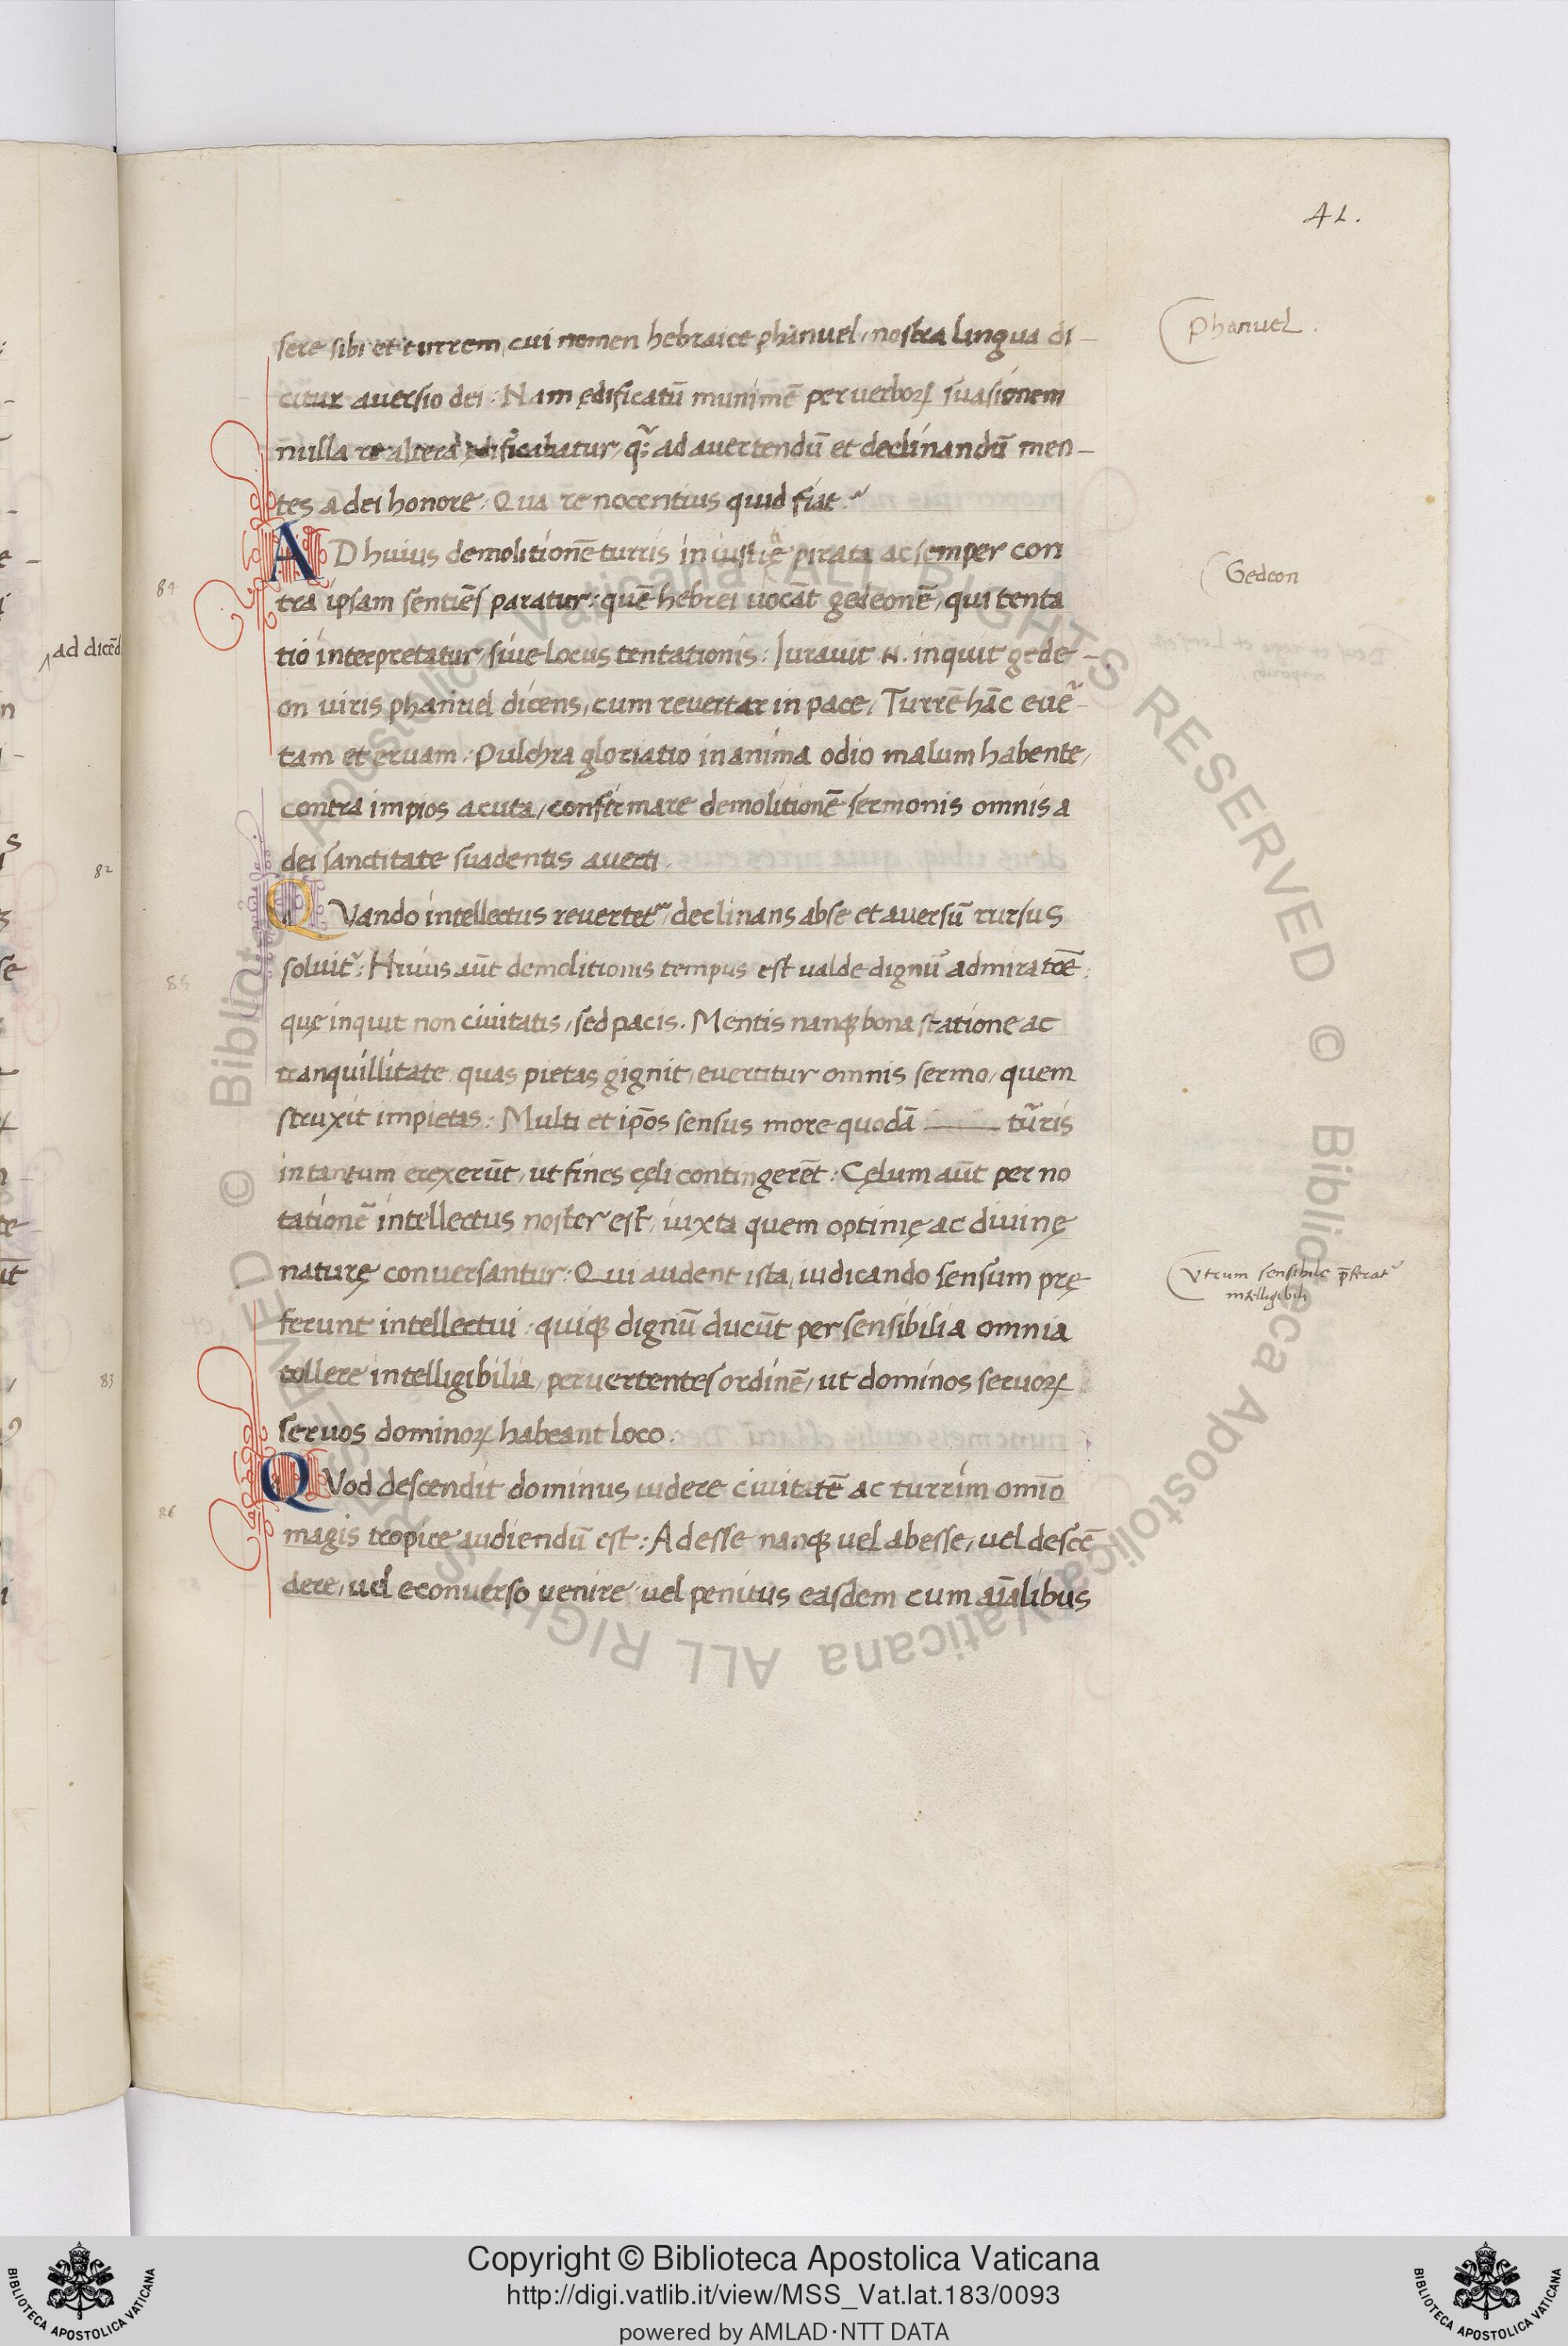 41.
sere sibi et turrem, cui nomen hebraice phanuel, nostra lingua di-
citur aversio dei: Nam ędificatū munimē per verboꝝ suasionem
nulla re altera ędificabatur, ad avertendū et declinandū men-
tes a dei honore: Qua re nocentius quid fiat?
AD huius demolitionē turris iniustię pirata ac semper con
tra ipsam sentiēs paratur: quē hebrei vocāt gedeonē, qui tenta
tio interpretatur, sive locus tentationis: Iuravit .N. inquit gede-
on viris phanuel dicens, cum revertar in pace, Turrē hāc evē-
tam et eruam: Pulchra gloriatio in anima odio malum habente,
contra impios acuta, confirmare demolitionē sermonis omnis a
dei sanctitate suadentis averti.
QVando intellectus revertet᷑, declinans ab se et aversū rursus
soluit᷑: Huius aūt demolitionis tempus est valde dignū admiratōe:
quę inquit non civitatis, sed pacis. Mentis nanqꝫ bona statione ac
tranquillitate, quas pietas gignit, evertitur omnis sermo, quem
struxit impietas: Multi et ip̄os sensus more quodā ——— tur̄ris
in tantum erexerūt, ut fines cęli contingerēt: Cęlum aūt per no
tationē intellectus noster est, iuxta quem optimę ac divinę
naturę conversantur: Qui audent ista, iudicando sensum prę
ferunt intellectui: quiqꝫ dignū ducūt per sensibilia omnia
tollere intelligibilia, pervertentes ordinē, ut dominos servoꝝ
servos dominoꝝ habeant loco.
QVod descendit dominus videre civitatē ac turrim om̄io
magis tropice audiendū est: Adesse nanqꝫ vel abesse, vel descē
dere, vel econverso venire vel penitus easdem cum aīalibus
Phanuel.
Gedeon
Vtrum sensibile p̄ferat᷑
intelligibili
84
85
86
82
83
ad dicēd
Copyright © Biblioteca Apostolica Vaticana
http://digi.vatlib.it/view/MSS_Vat.lat.183/0093
powered by AMLAD·NTT DATA
BIBLIOTECA APOSTOLICA VATICANA
BIBLIOTECA APOSTOLICA VATICANA
© Biblioteca Apostolica Vaticana ALL RIGHTS RESERVED © Biblioteca Apostolica Vaticana ALL RIGHTS RESERVED